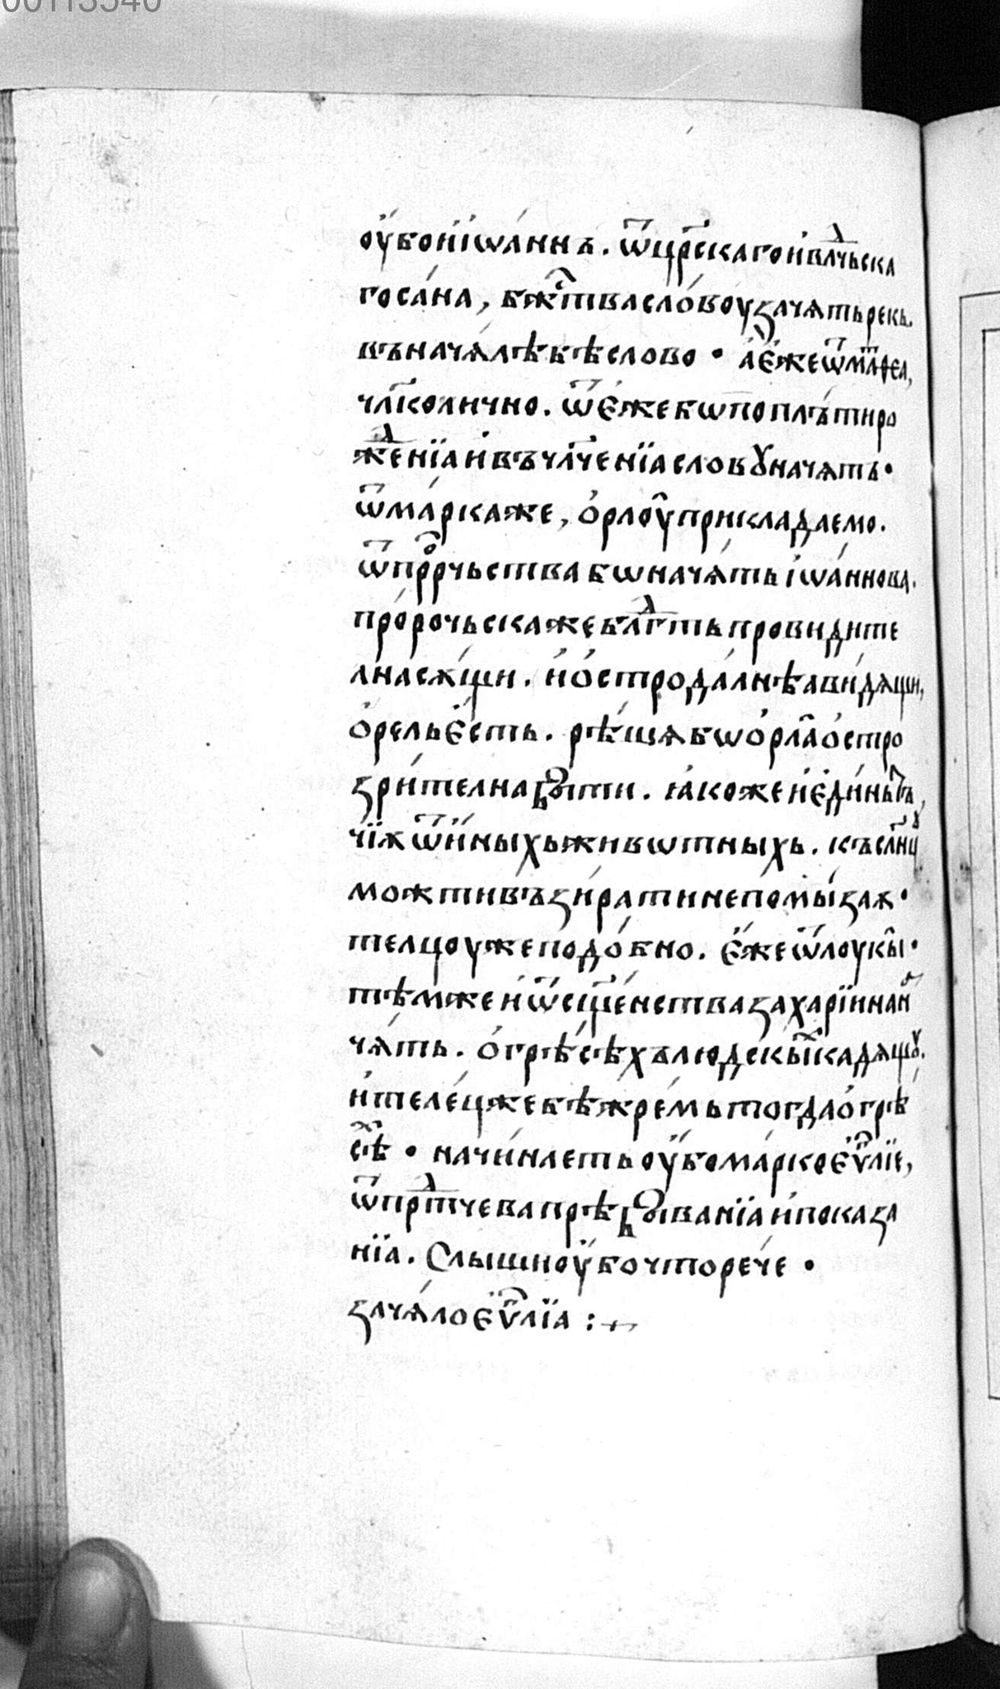 00113540
оу҆бо и҆ і҆ѡа́ннъ. ѿ цр҃скаго и҆ влⷣчьска
го са́на, бж҃тⷭва сло́воу зачѧть рекь.
въ начѧлѣ бѣ слово • а҆ є҆же ѿ маⷮѳеа,
чл҃колично. ѿ є҆же бѡ по плъти ро
жⷣенїа и҆ въчл҃ченїа словꙋ начѧть•
ѿ ма́рка же, ѻ҆рлоу̑ прикладаемо.
ѿ прⷪ҇рчьства бѡ начѧ́ть і҆ѡа́ннова.
про́рочьска же блгⷣть провидите
лна сѫ́щи. и҆ ѻ҆стро да́лнѣа ви́дѧщи,
ѻ҆рель є҆сть. рѣшѧ бѡ ѻ҆рла̑ ѻ҆стро
зри́телна быти. ꙗ҆коже и҆ є҆ди́нь ѿ
чїѫ ѿ и҆ныхь живѡтныхь. къ слн҃цꙋ
можти възи́рати не помы́заѫ•
телцоу же подо́бно. є҆же ѿ лоукы̑•
тѣмже и҆ ѿ сщ҃енства захарїина на
чѧ́ть. ѻ҆ грѣсѣхъ людскыⷯ кадѧщꙋ.
и҆ теле́ц же бѣ жрѣмь тогда ѻ҆ грѣ
сѣⷯ • начи́наеть оу҆бо ма́рко є҆ѵⷢ҇лїе,
ѿ прⷣтчева прѣбыванїа и҆ показа
нїа. Слыши оу҆бо что рече •
зачѧ́ло є҆ѵⷢ҇лїа :~